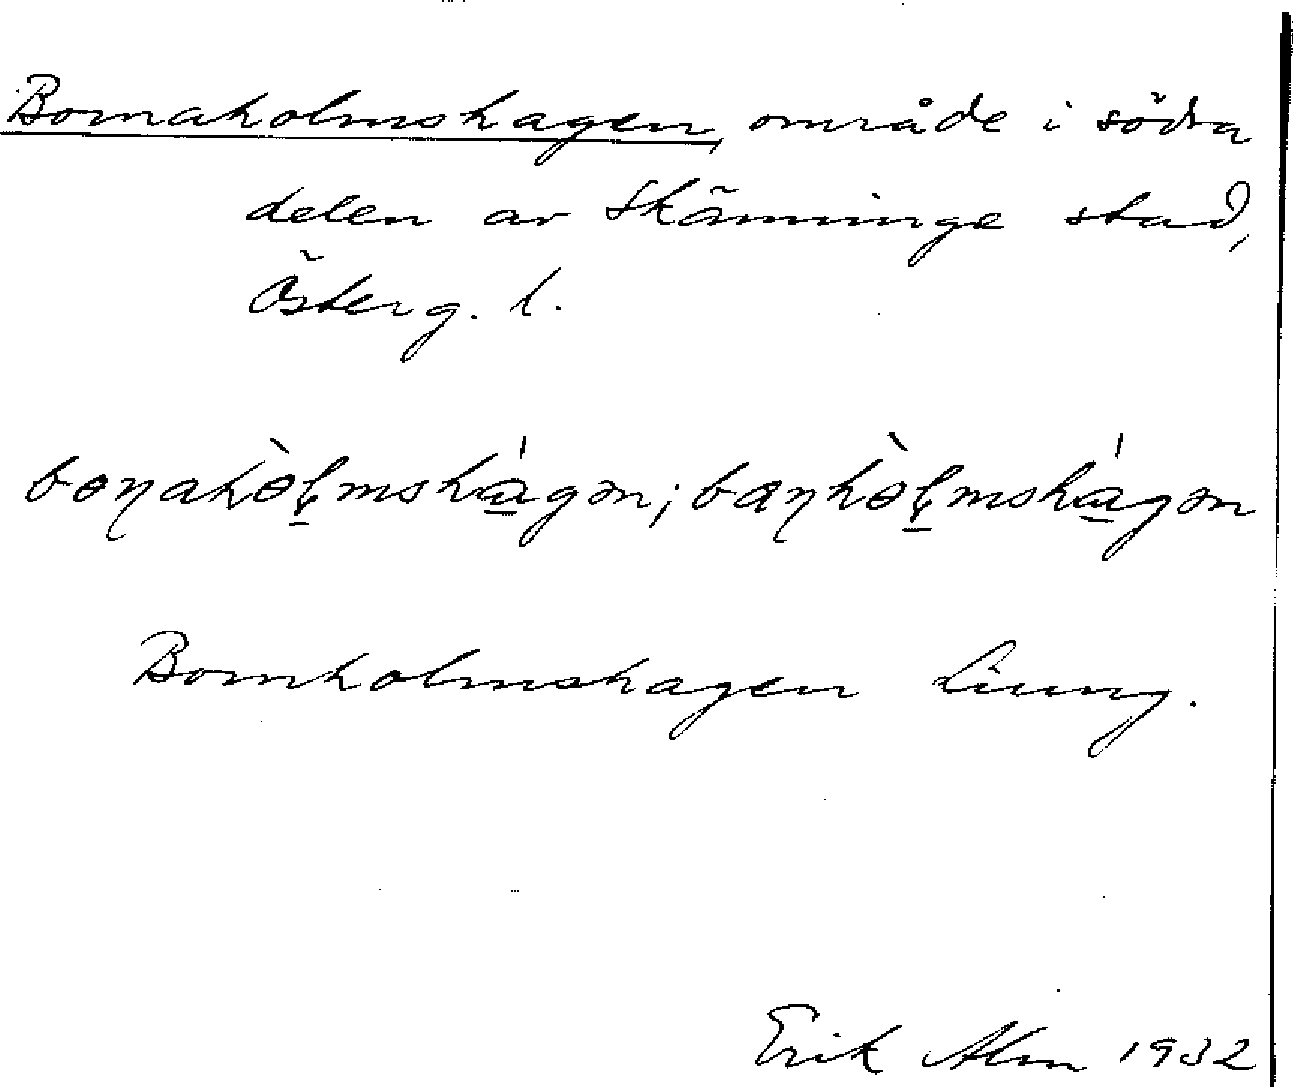 Bornaholmshagen, område i södra
delen av Skänninge stad,
Österg. l.
bɵɳahɵ̀ɽmshágən; bɵɳhɵ̀ɽmshágən
Bornholmshagen Liung.
Erik Alm 1932